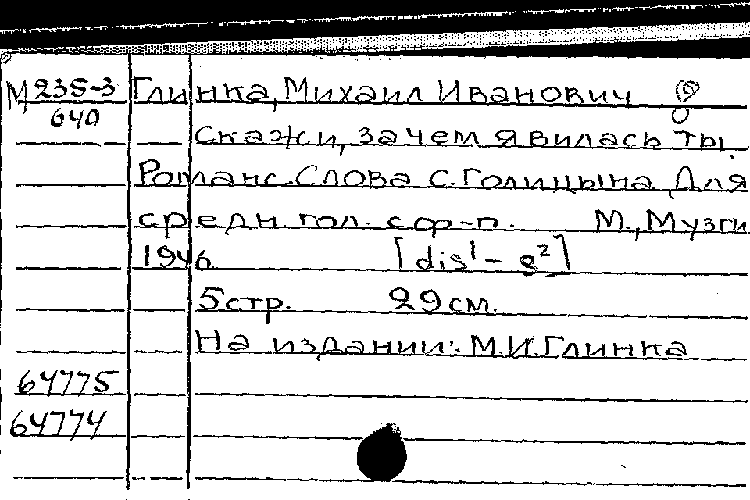 М 235-3 Глинка, Михаил Иванович
640
Скажи, зачем явилась ты.
Романс. Слова С. Голицына. Для
средн гол. с ф-п. М., Музги
1946.
[dis¹ – e²]
5 стр. 29 см.
На издании: М.И. Глинка
64775
64774